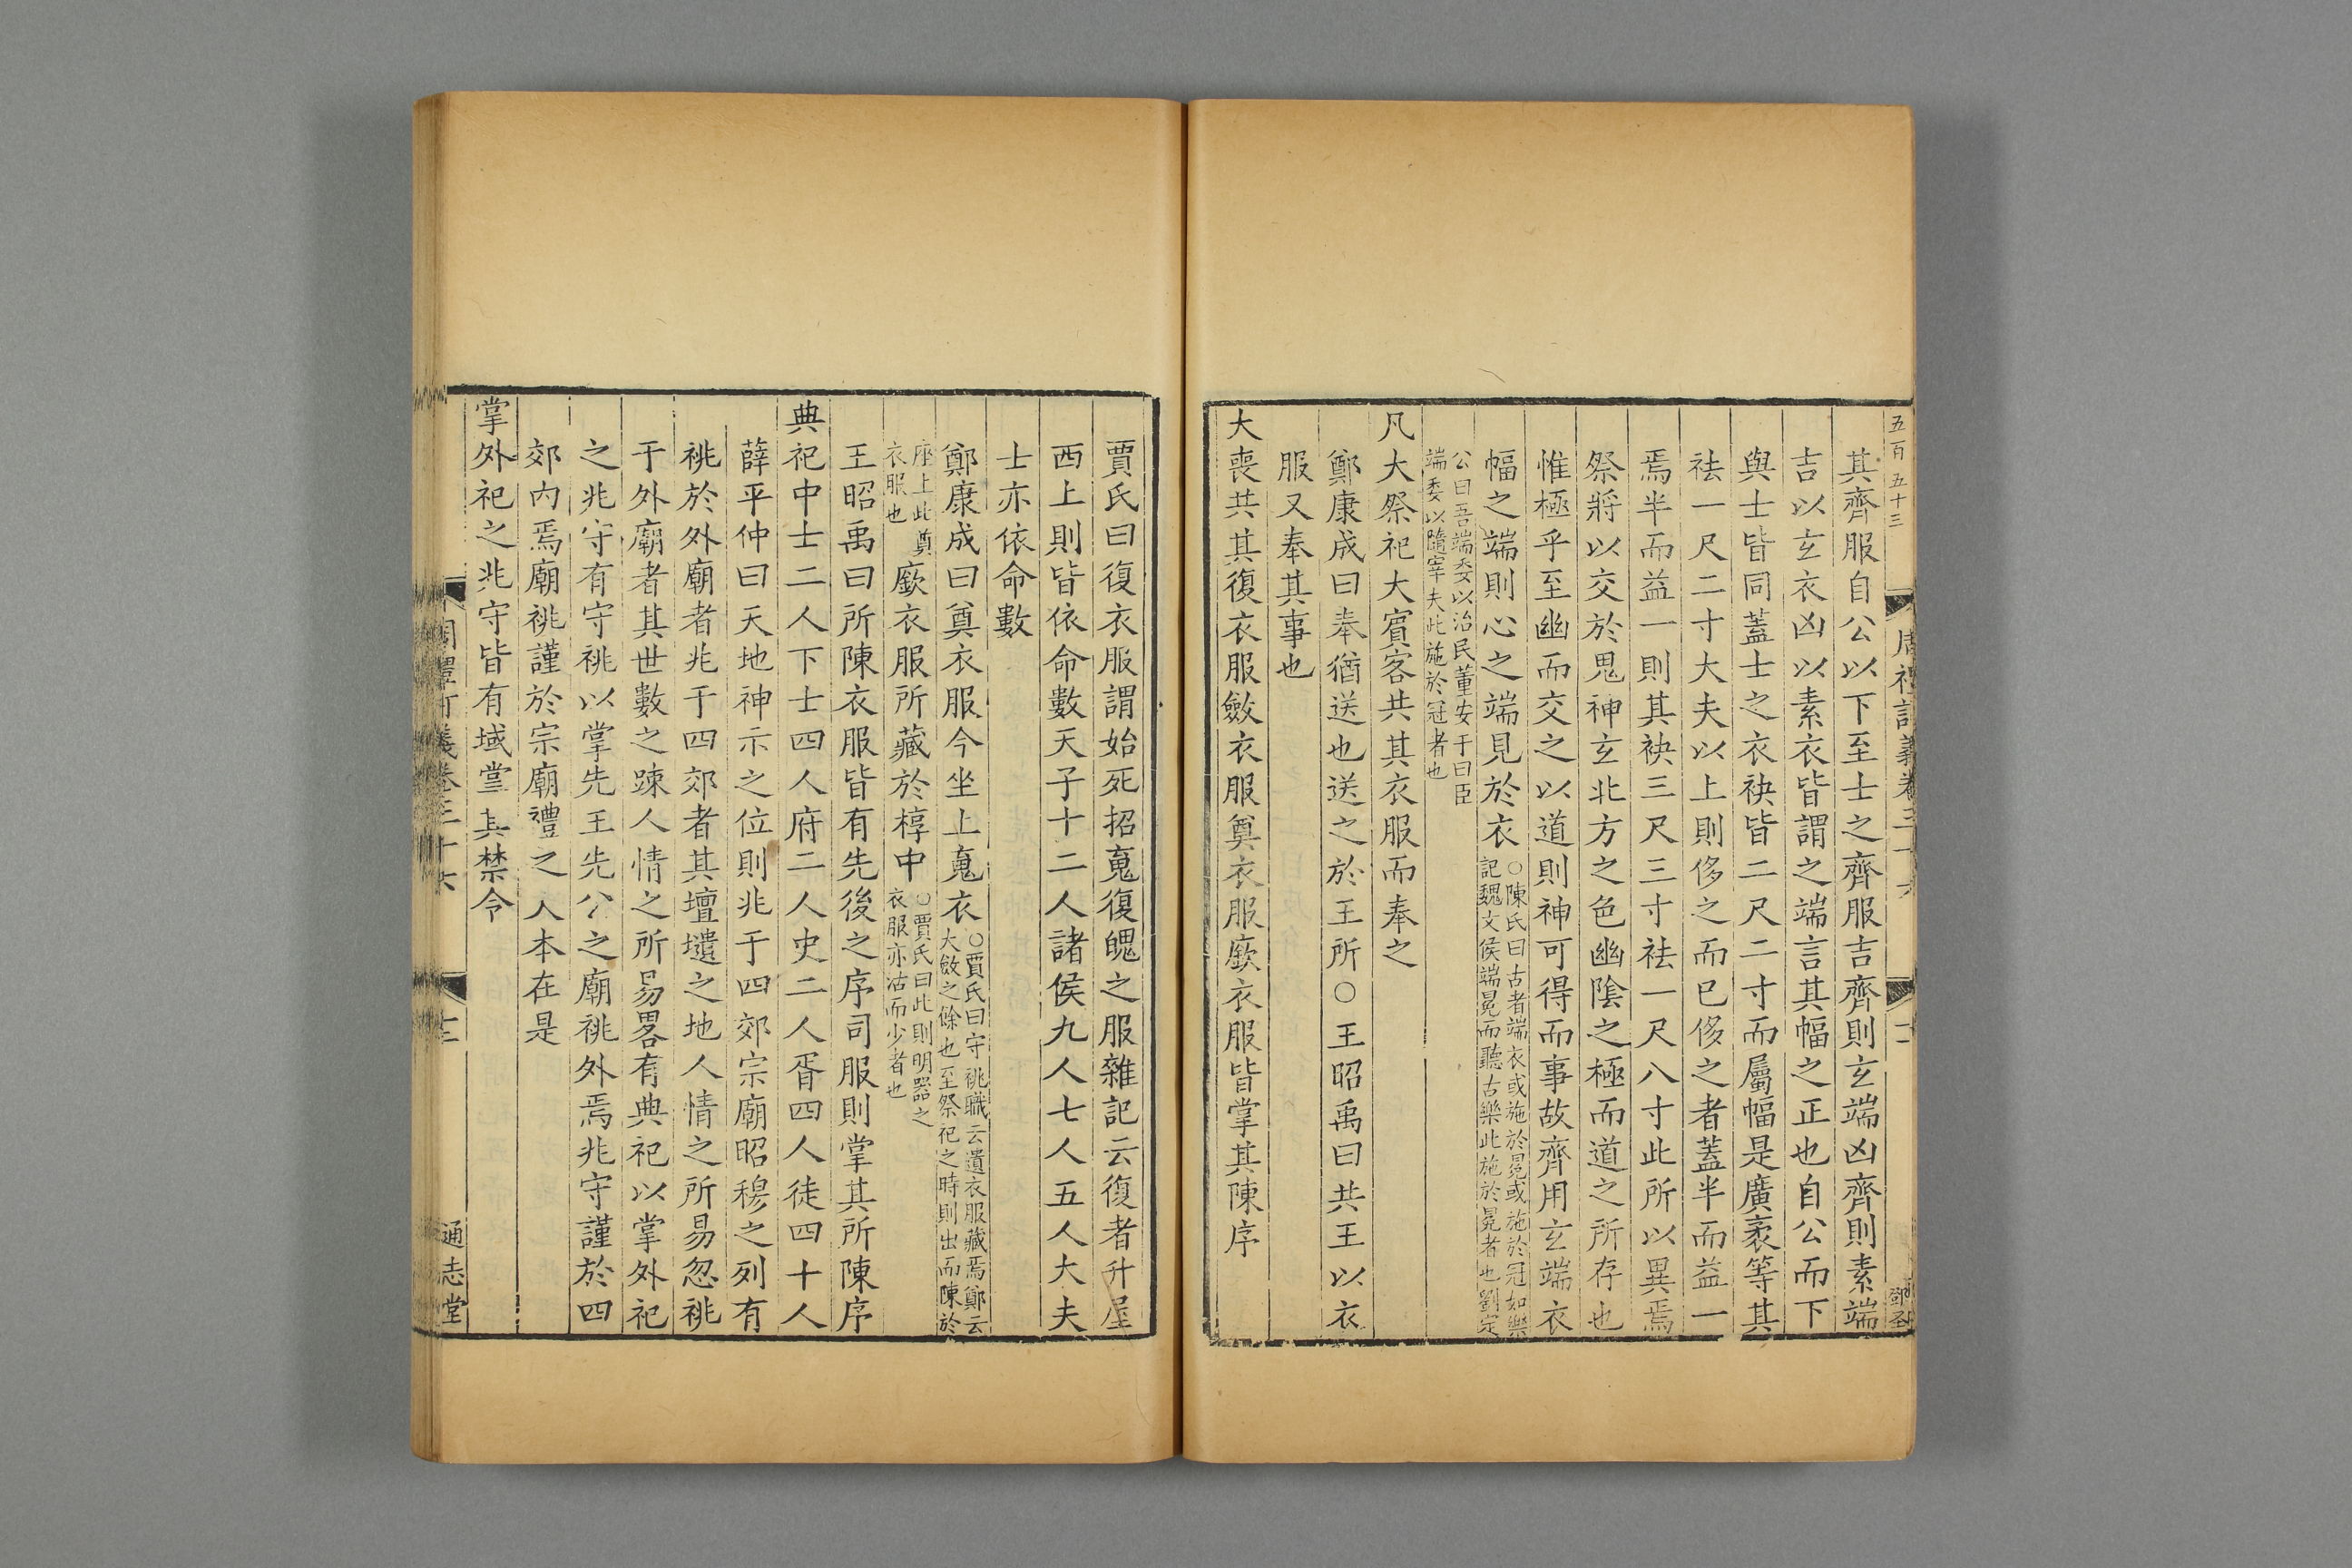 五百五十三
其齊服自公以下至士之齊服吉齊則玄端凶齊則素端
吉以玄衣凶以素衣皆謂之端言其幅之正也自公而下
與士皆同蓋士之衣袂皆二尺二寸而屬幅是廣袤等其
袪一尺二寸大夫以上則侈之而已侈之者蓋半而益一
焉半而益一則其袂三尺三寸袪一尺八寸此所以異焉
祭將以交於鬼神玄北方之色幽陰之極而道之所存也
惟極乎至幽而交之以道則神可得而事故齊用玄端衣
幅之端則心之端見於衣
○陳氏曰古者端衣或施於冕或施於冠如樂
記魏文侯端冕而聽古樂此施於冕者也劉定
公曰吾端委以治民董安于曰臣
端委以隨宰夫此施於冠者也
凡大祭祀大賓客共其衣服而奉之
鄭康成曰奉猶送也送之於王所○王昭禹曰共王以衣
服又奉其事也
大喪共其復衣服斂衣服奠衣服廞衣服皆掌其陳序
賈氏曰復衣服謂始死招䰟復魄之服雜記云復者升屋
西上則皆依命數天子十二人諸侯九人七人五人大夫
士亦依命數
鄭康成曰奠衣服今坐上䰟衣
○賈氏曰守祧職云遺衣服藏焉鄭云
大斂之餘也至祭祀之時則出而陳於
座上此奠
衣服也
廞衣服所藏於椁中
○賈氏曰此則明器之
衣服亦沽而少者也
王昭禹曰所陳衣服皆有先後之序司服則掌其所陳序
典祀中士二人下士四人府二人史二人胥四人徒四十人
薛平仲曰天地神示之位則兆于四郊宗廟昭穆之列有
祧於外廟者兆于四郊者其壇壝之地人情之所易忽祧
于外廟者其世數之踈人情之所易畧有典祀以掌外祀
之兆守有守祧以掌先王先公之廟祧外焉兆守謹於四
郊内焉廟祧謹於宗廟禮之大本在是
掌外祀之兆守皆有域掌其禁令
通志堂